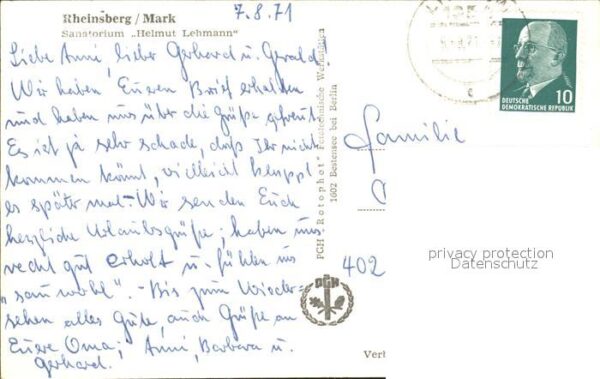 Rheinsberg / Mark
7.8.71
Sanatorium „Helmut Lehmann"
Liebe Anni, lieber Gerhard u. Gerald
Wir haben Eueren Brief erhalten
und haben uns über die Grüße gefreut.
Es ist ja sehr schade, daß Ihr nicht
kommen könnt, vielleicht klappt
es später mal. Wir senden Euch
herzliche Urlaubsgrüße; haben uns
recht gut erholt u. fühlen uns
"sau wohl". - Bis zum Wieder-
sehen alles Gute, auch Grüße an
Euere Oma; Anni, Barbara u.
Gerhard.
PGH „Rotophot" Fototechnische Werkstätten
1602 Bestensee bei Berlin
PGH
DEUTSCHE
DEMOKRATISCHE REPUBLIK
10
Familie
402
privacy protection
Datenschutz
Verb